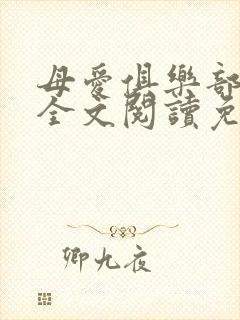 母愛俱樂部
全文閱讀免
卿九夜